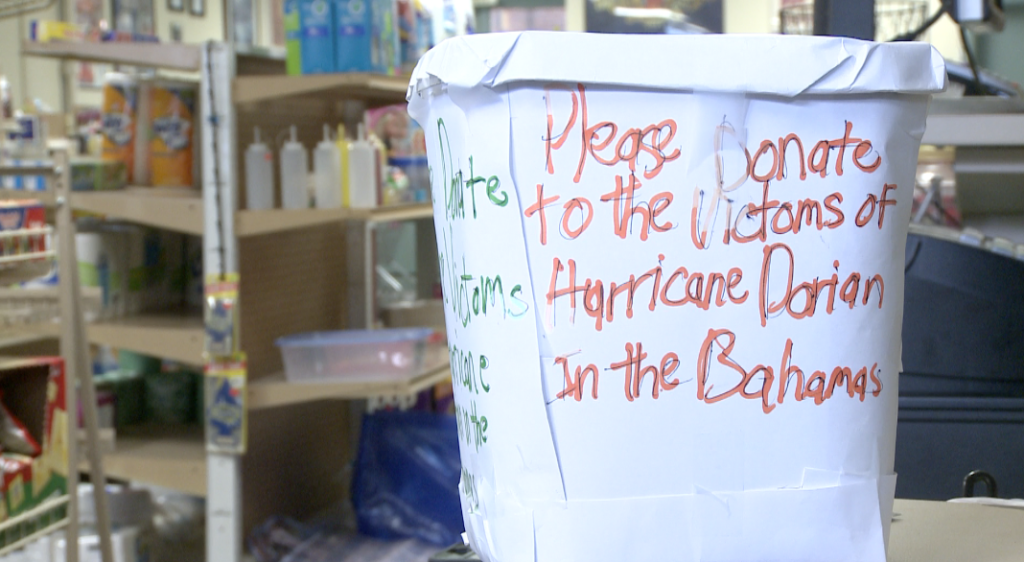 Please Donate
to the Victoms of
Hurricane Dorian
In the Bahamas
Donate
Victoms
in the